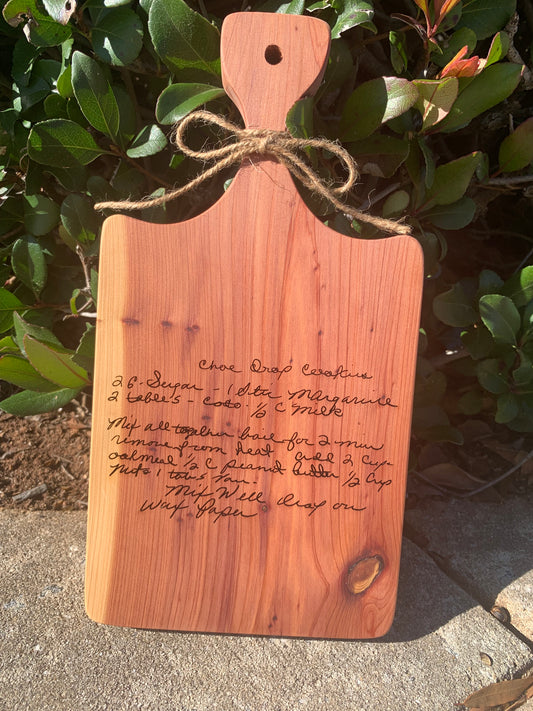 Choc Drop Cookies
2 C - Sugar - 1 Stic Margarine
2 table's - Coco - ½ C Milk
Mix all together boil for 2 min
remove from heat add 2 Cups
oatmeal ½ C peanut butter ½ Cup
Nuts 1 Van.
Mix Well drop on
Wax Paper